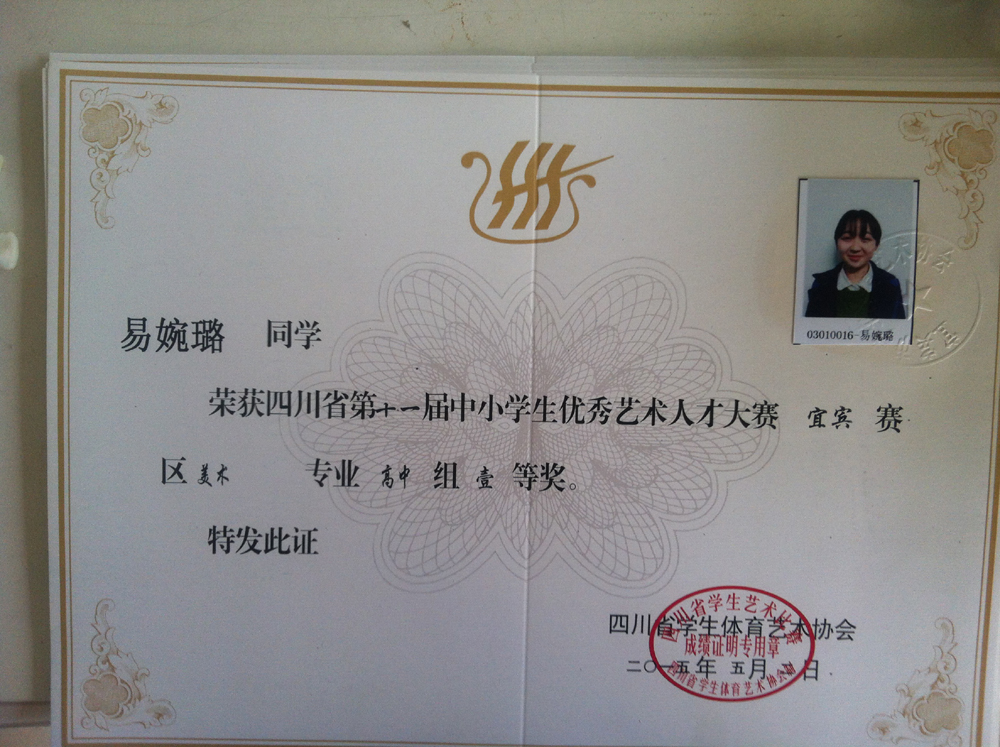 03010016-易婉璐
易婉璐 同学
荣获四川省第十一届中小学生优秀艺术人才大赛 宜宾 赛
区 美术 专业 高中 组 壹 等奖。
特发此证
四川省学生体育艺术协会
二〇一五年 五月 日
四川省学生艺术比赛
成绩证明专用章
四川省学生体育艺术协会